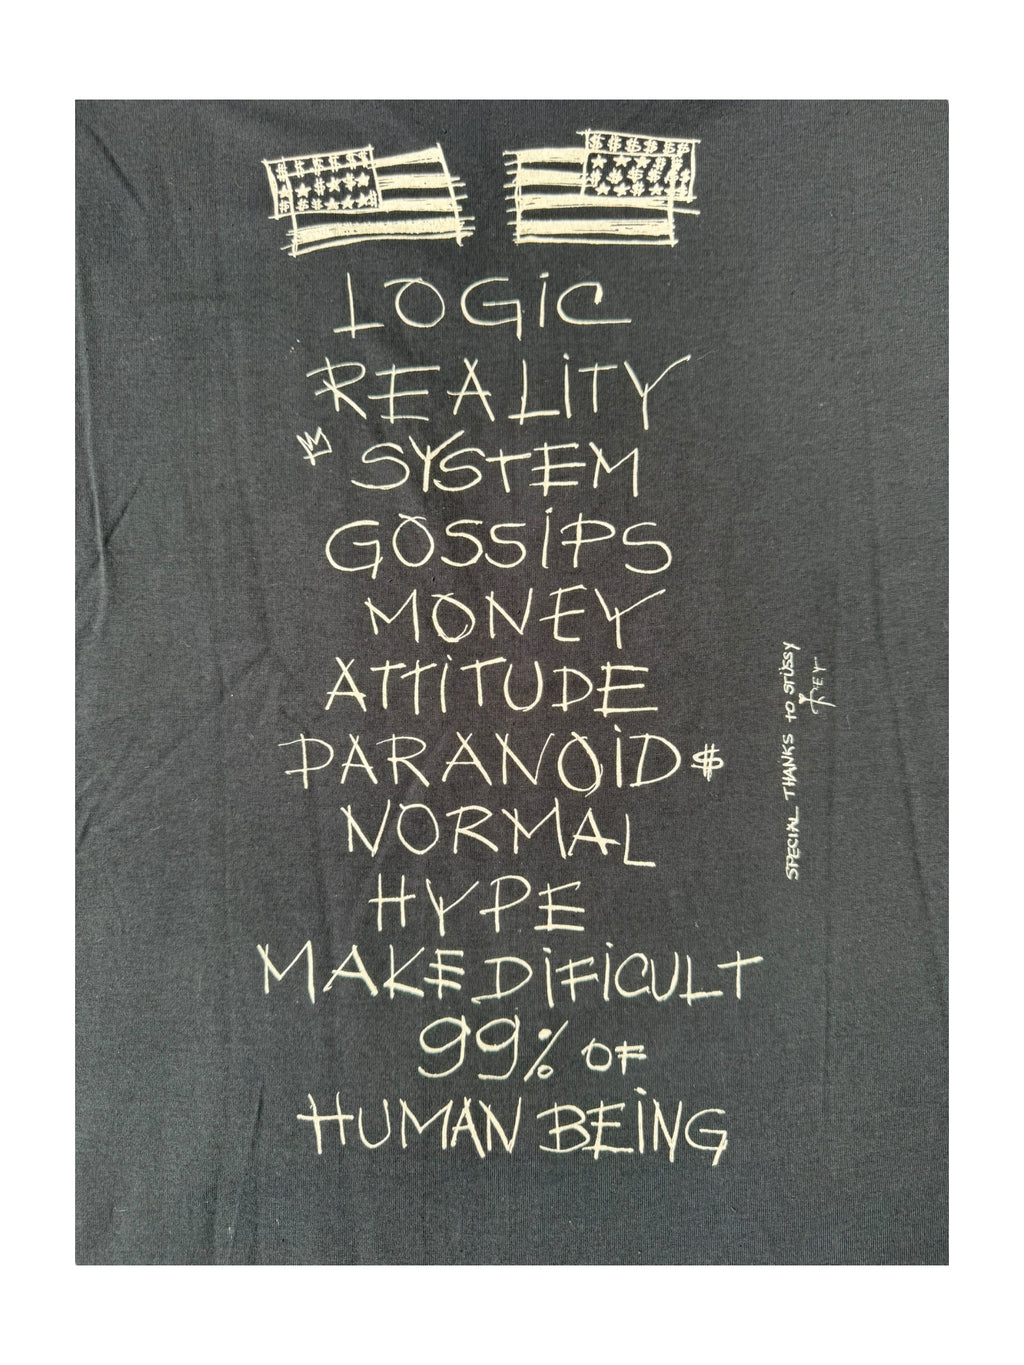 LOGiC
REALiTY
SYSTEM
GOSSiPS
MONEY
ATTiTUDE
PARANOiD $
NORMAL
HYPE
MAKE DiFiCULT
99% OF
HUMAN BEiNG
SPECIAL THANKS to STÜSSY